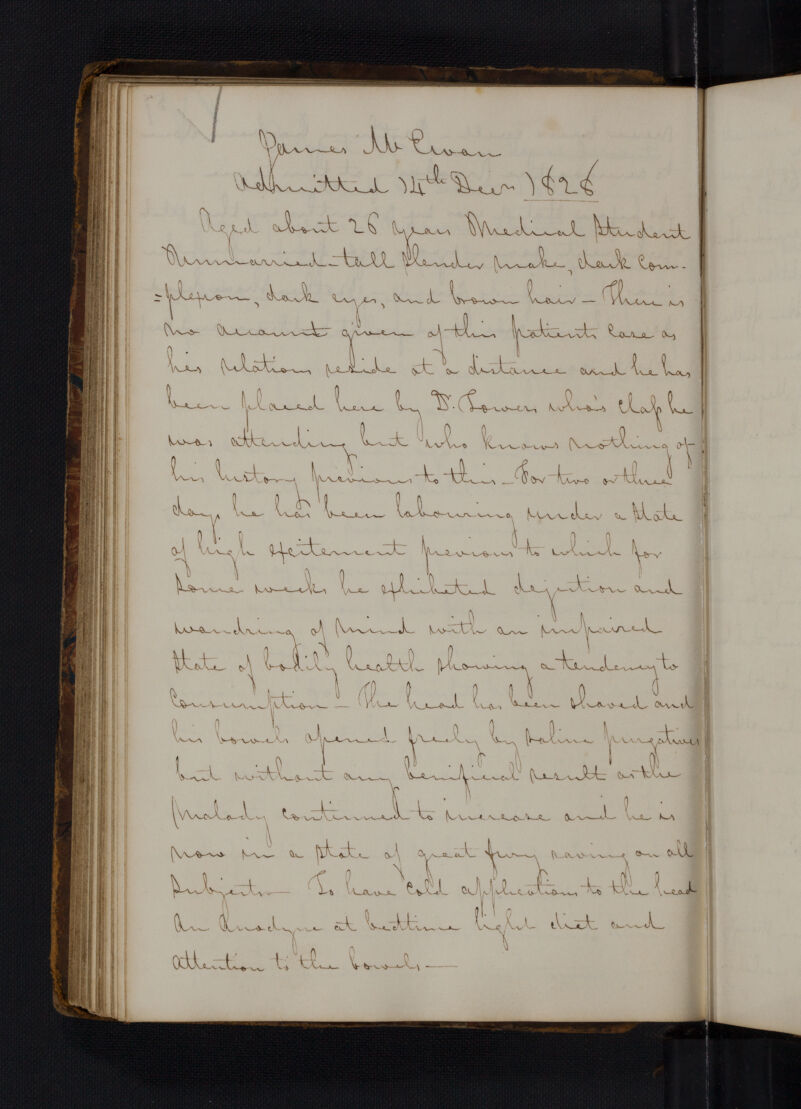 James McEwan
Admitted 14th Decr 1828
Aged about 26 years Medical Student
Unmarried - tall slender make, dark Com-
=plexion, dark eyes, and brown hair - There is
no account given of this patients Case as
his relations reside at a distance and he has
been placed here by Dr. Towers who's class he
was attending but who knows nothing of
his history previous to this - For two or three
days he has been labouring under a state
of high excitement previous to which for
some weeks he exhibited dejection and
wandring of mind with an impaired
state of bodily health showing a tendency to
Consumption - The head has been shaved and
his bowels opened freely by saline purgatives
but without any benificial result as the
malady continued to increase and he is
now in a state of great fury raving on all
subjects - To have cold applications to the head
An Anodyne at bedtime light diet and
attention to the bowels -